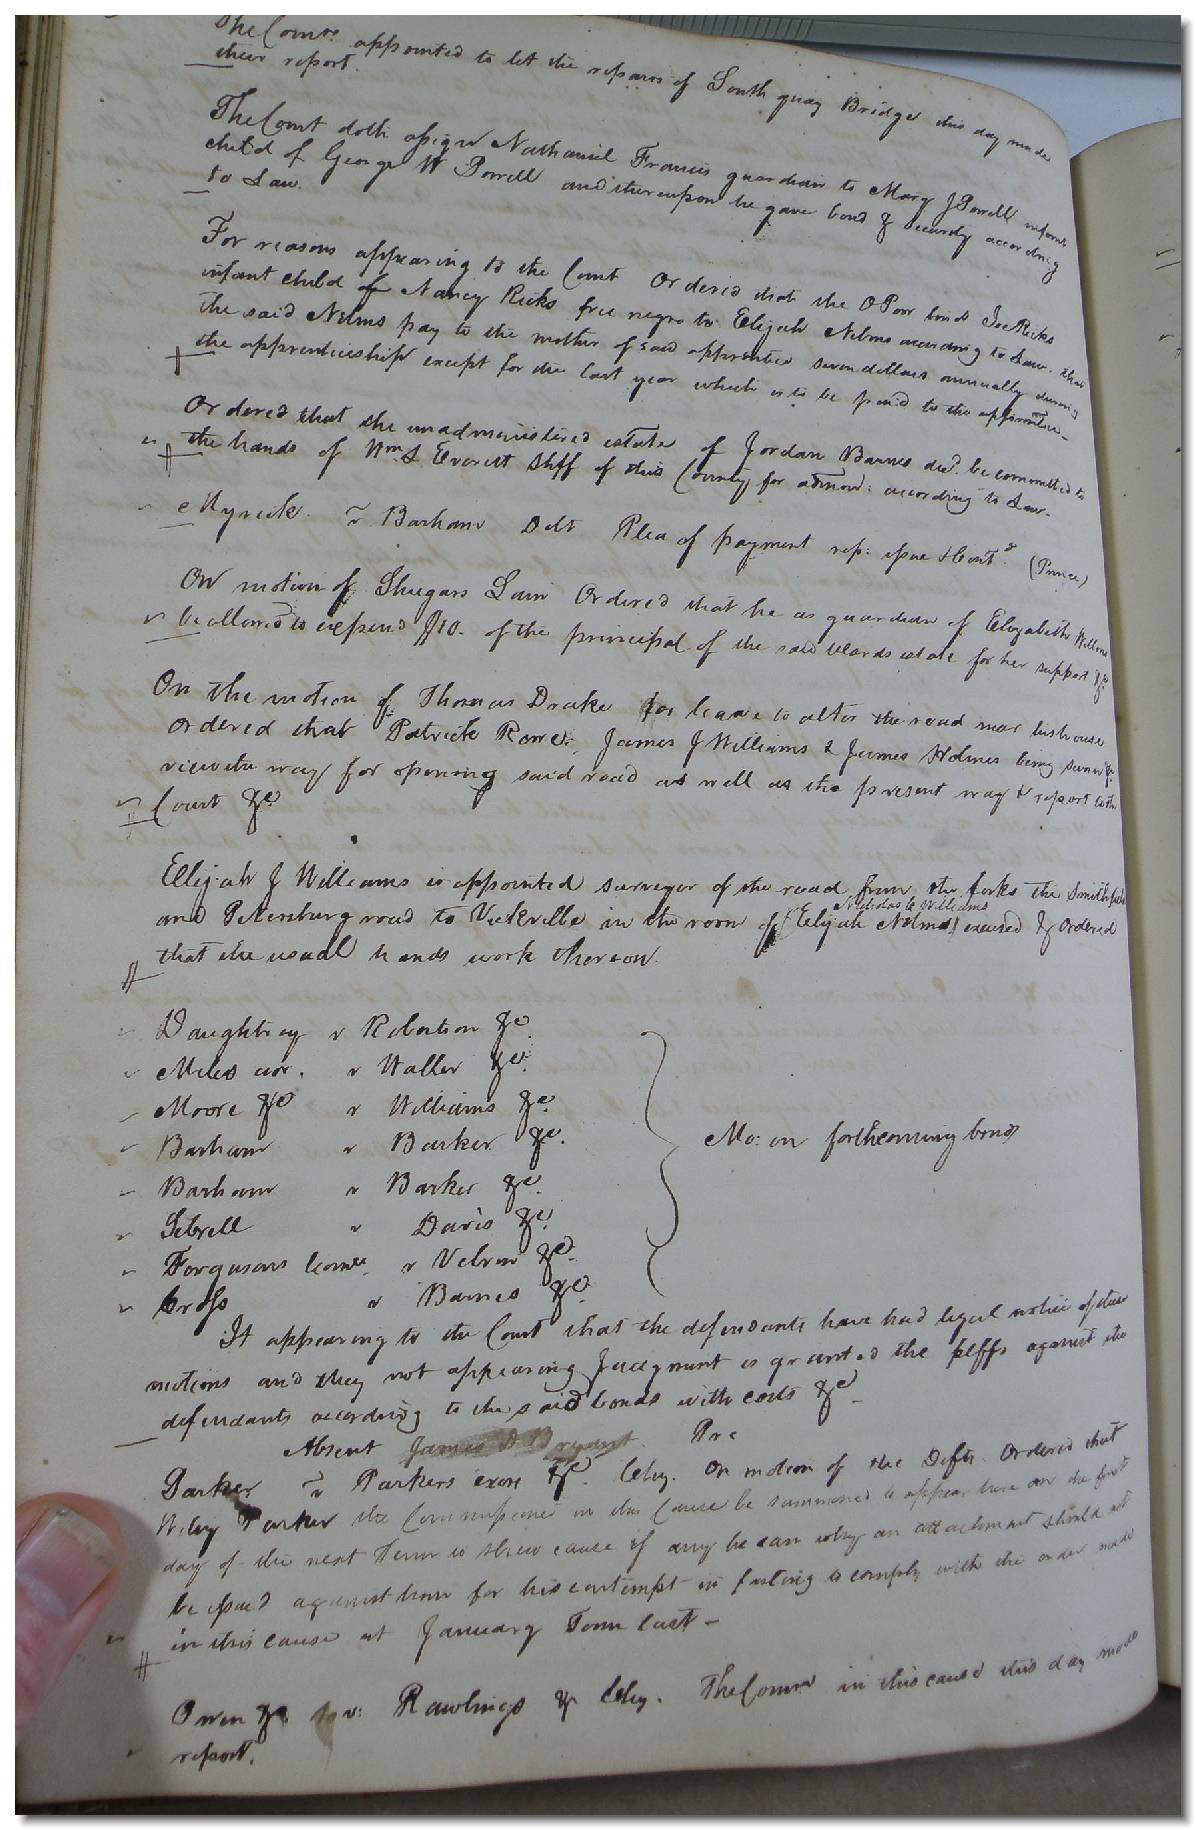 The Comrs appointed to let the repairs of South quay Bridge this day made
their report.
The Court doth assign Nathaniel Francis guardian to Mary J Powell infant
child of George W Powell and thereupon he gave bond & security according
to Law.
For reasons appearing to the Court Ordered that the O Poor bind Joe Ricks
infant child of Nancy Ricks free negro to Elijah Nelms according to Law. that
the said Nelms pay to the mother of said apprentice seven dollars annually during
the apprenticeship except for the last year which is to be paid to the apprentice.
Ordered that the unadministered estate of Jordan Barnes decd. be committed to
the hands of Wm S Everett Shff of this County for admon: according to Law.
Myrick v Barham Debt Plea of payment rep: issue & Contd (Prince)
On motion of Shugars Lain Ordered that he as guardian of Elizabeth
be allowed to expend $10. of the principal of the said wards estate for her support &c
On the motion of Thomas Drake for leave to alter the road near his house
Ordered that Patrick Rowe, James J Williams & James Holmes being sworn &c
view the way for opening said road as well as the present way & report to the
Court &c
Elijah J Williams is appointed surveyor of the road from the forks the Smithfield
Nicholas Williams
and Petersburg road to Vicksville in the room of (Elijah Nelms) excused & ordered
that the usual hands work thereon.
Daughtrey v Robertson &c
Miles v Waller &c.
Moore &c v Williams &c.
Barham v Barker &c.
Barham v Barker &c.
Sebrell v Davis &c.
Fergusons v &c.
Gross v Barnes &c.
Mo: on forthcoming bonds
It appearing to the Court that the defendants have had legal notice of these
motions and they not appearing Judgment is granted the plffs against the
defendants according to the said bonds with costs &c
Absent James D Bryant Pre
Parker v Parkers exors &c. Chy. On motion of the Defts Ordered that
Wiley Parker the Commissioner in this Cause be summoned to appear here on the first
day of the next Term to shew cause if any he can why an attachment should not
be issued against him for his contempt in failing to comply with the order made
in this cause at January Term last -
Owen &c v: Rawlings & Chy. The Comr in this cause this day made
report.